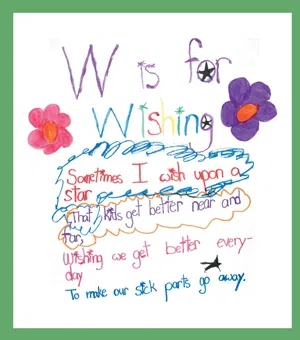 W is for
Wishing
Sometimes I wish upon a
star
That kids get better near and
far,
Wishing we get better every-
day
To make our sick parts go away.